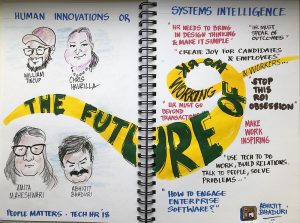 HUMAN INNOVATIONS OR
SYSTEMS INTELLIGENCE
WILLIAM
TINCUP
CHRIS
HAVRILLA
AMITA
MAHESHWARI
ABHIJIT
BHADURI
PEOPLE MATTERS - TECH HR 18
THE FUTURE OF WORK
"HR NEEDS TO BRING
IN DESIGN THINKING
& MAKE IT SIMPLE"
"HR MUST
SPEAK OF
OUTCOMES"
"CREATE JOY FOR CANDIDATES
& EMPLOYEES"
WORKING
& WORKERS...
"HR MUST GO
BEYOND
TRANSACTIONS"
STOP
THIS
ROI
OBSESSION"
MAKE
WORK
INSPIRING
"USE TECH TO DO
WORK, BUILD RELATIONS,
TALK TO PEOPLE, SOLVE
PROBLEMS..."
"HOW TO ENGAGE
ENTERPRISE
SOFTWARE?"
ABHIJIT
BHADURI